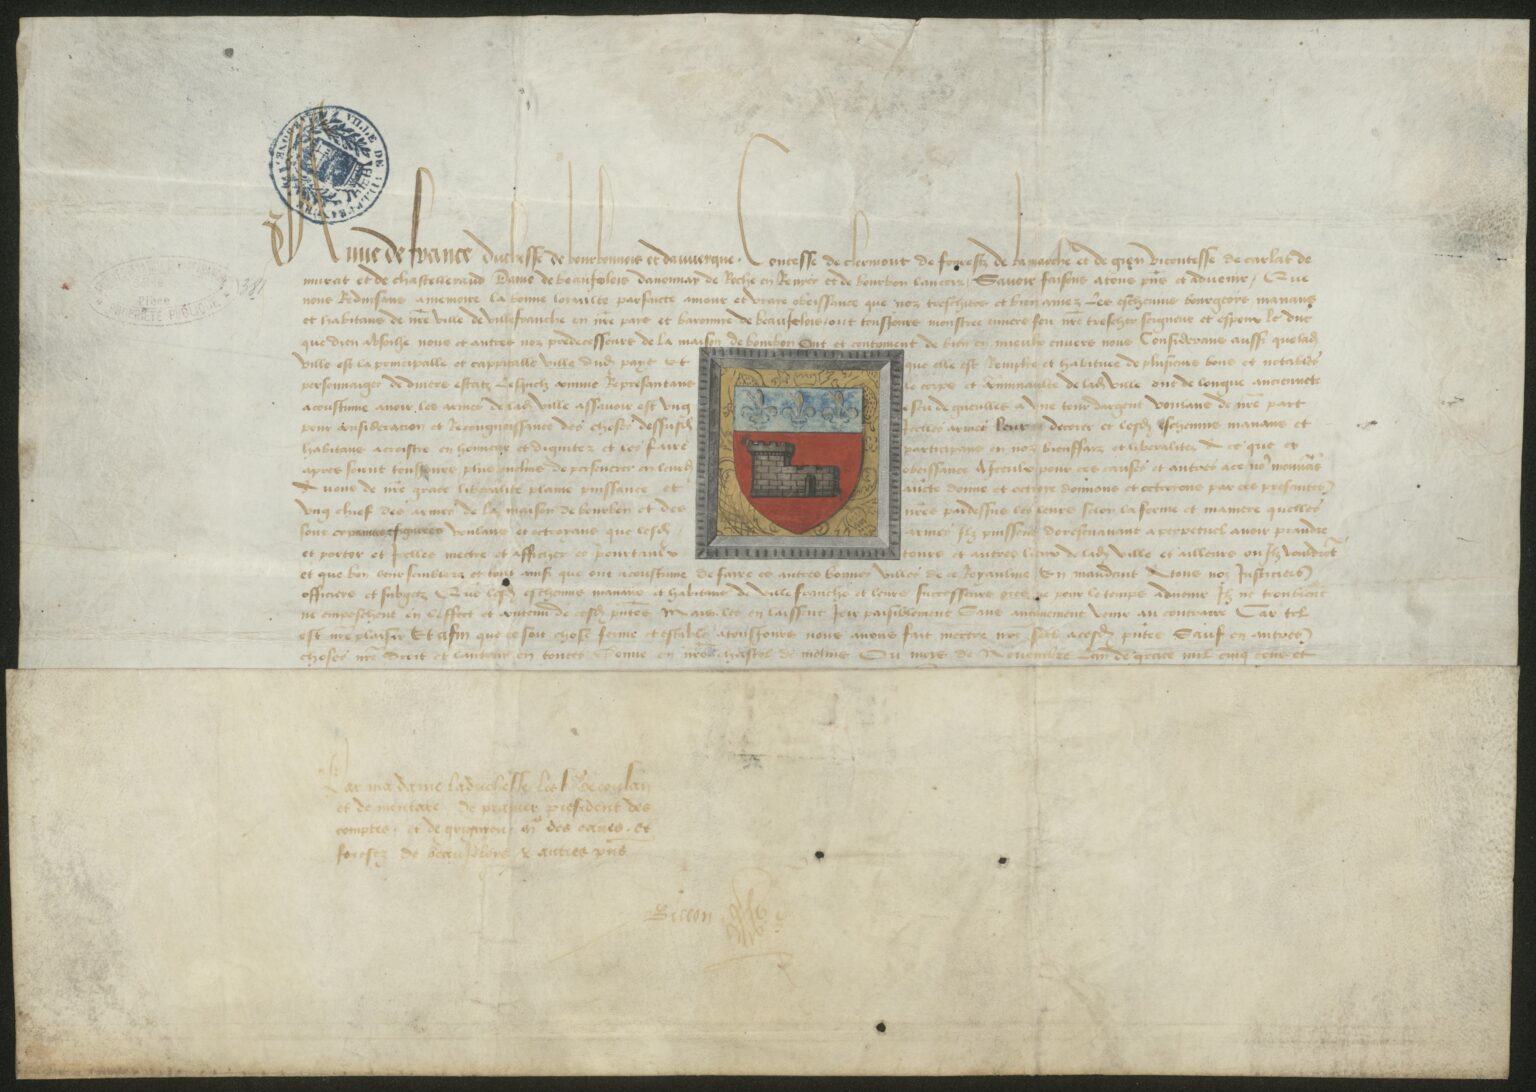 VILLE DE VILLEFRANCHE
Place
PROPRIÉTÉ PUBLIQUE
1381
Anne de france duchesse de bourbonnois et dauvergne. Contesse de clermont de forestz de lamarche et de gien vicontesse de carlat de
murat et de chastelleraud Dame de beaujolois dannonay de Roche en Renyer et de bourbon lanceis Savoir faisons a tous pns et advenir Que
nous Reduisans a memoire la bonne loiaulte parfaicte amour et vraye obeissance que noz treschiers et bien amez Les eschevins bourgeois manans
et habitans de nre ville de villefranche en nre pays et baronnie de beaujolois ont tousjours monstree envers feu nre trescher seigneur et espoux le duc
que dieu absoille nous et autres noz predecesseurs de la maison de bourbon Ont et continuent de bien en mieulx envers nous Considerans aussi que lad
ville est la principalle et cappitalle ville dud pays et que elle est Remplie et habituee de plusieurs bons et notables
personnaiges de divers estatz Lesquelz comme Representans le corps et communaulte de lad ville ont de longue anciennete
acoustume avoir les armes de lad ville assavoir est ung escu de gueulles a une tour dargent Voulans de nre part
pour consideracion et Recongnoissance des choses dessusd Icelles armes leur decorer et lesd eschevins manans et
habitans acroistre en honneur et dignitez et les faire participans en noz bienffaiz et liberalitez A ce que et
apres soient tousjours plus enclins de perseverer en leurd obeissance A Iceulx pour ces causes et autres a ce nous mouvans
Avons de nre grace liberalite plaine puissance et aucte donne et octroye donnons et octroyons par ces presentes
ung chief des armes de la maison de bourbon et des nres pardessus les leurs selon la forme et maniere quelles
sont cy paintes et figurees Voulans et octroyans que lesd armes Ilz puissent doresenavant a perpetuel avoir prandre
et porter et Icelles mectre et afficher es pourtaulx tours et autres lieux de lad ville et ailleurs ou Ilz vouldront
et que bon leur semblera et tout ainsi que ont acoustume de faire es autres bonnes villes de ce Royaulme Et n mandons A tous noz Justiciers
officiers et subgetz Que lesd eschevins manans et habitans de villefranche et leurs successeurs ores ne pour le temps advenir Ilz ne troublent
ne empeschent en leffect et contenu de cesd pntes Mais les en laissent joir paisiblement Sans aucunement venir au contraire Car tel
est nre plaisir Et afin que ce soit chose ferme et estable a tousjours nous avons fait mectre nre seel a cesd pntes Sauf en autres
choses nre droit et lautruy en toutes Donne en nre chastel de molins Ou mois de Novembre Lan de grace mil cinq cens et
Par ma dame la duchesse les
et de premier president des
comptes. et de des eaues. et
forestz de beaujolois & autres pns
Billon